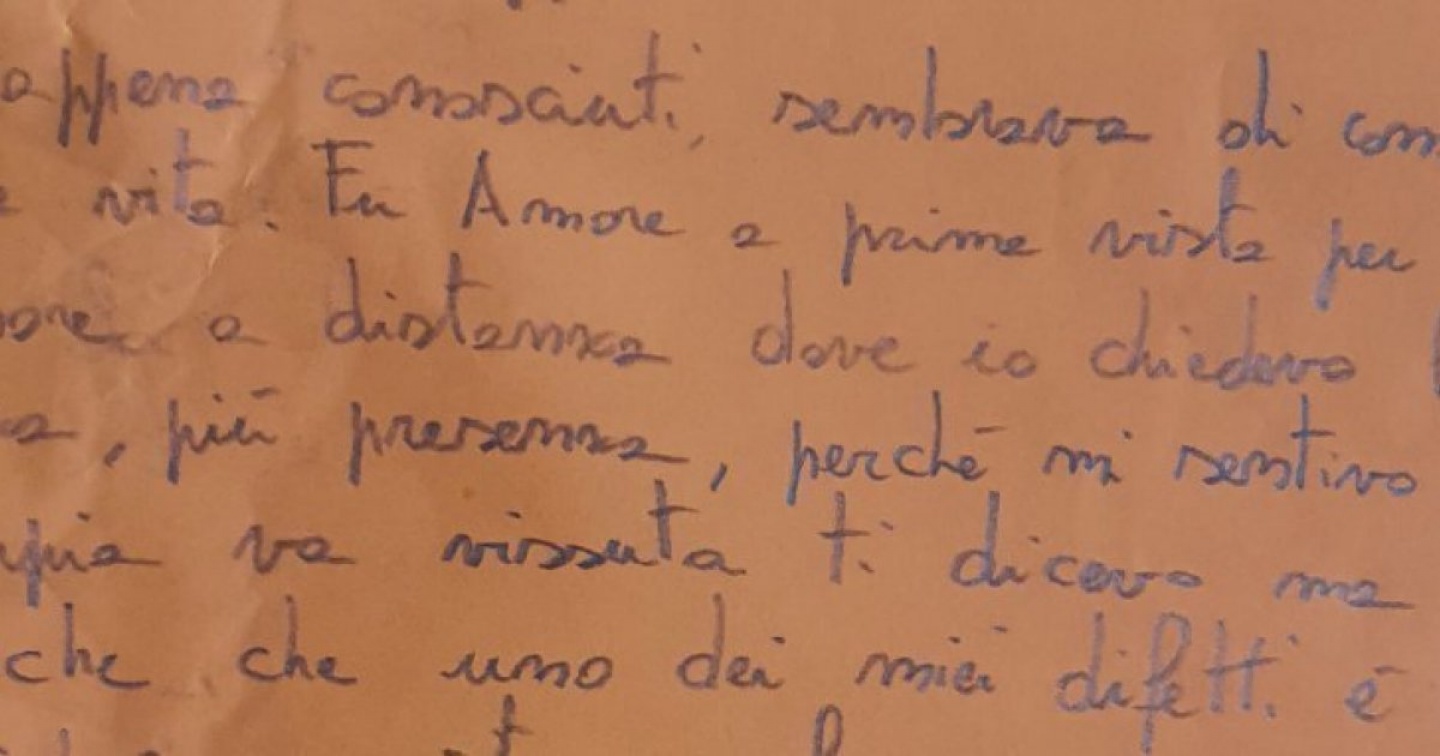 appena conosciuti, sembrava di
vita. Fu Amore a prima vista per
a distanza dove io chiedevo
, più presenza, perché mi sentivo
va vissuta ti dicevo ma
che che uno dei miei difetti è